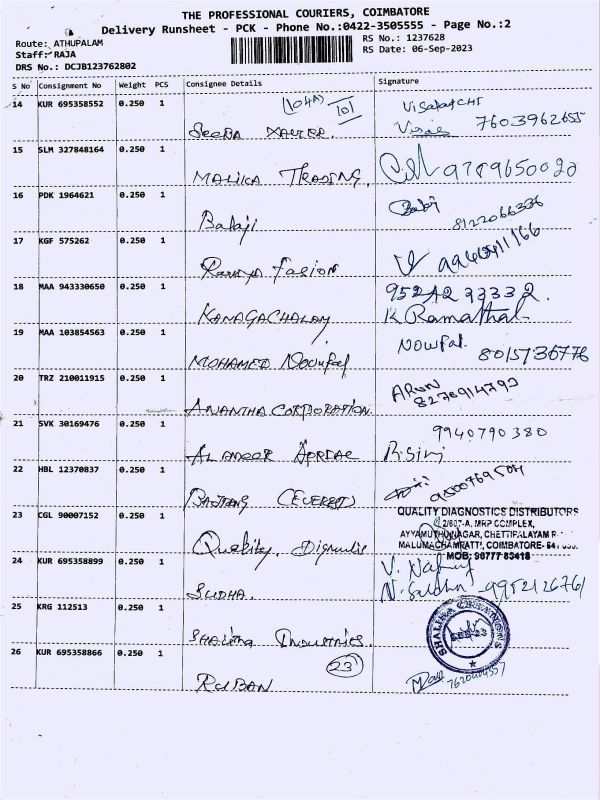 THE PROFESSIONAL COURIERS, COIMBATORE
Delivery Runsheet - PCK - Phone No.:0422-3505555 - Page No.:2
Route: ATHUPALAM
Staff: RAJA
DRS No.: DCJB123762802
RS No.: 1237628
RS Date: 06-Sep-2023
S No Consignment No Weight PCS Consignee Details Signature
14 KUR 695358552 0.250 1 (104A) 101
SEEBA XAVIER. 7603962655
15 SLM 327848164 0.250 1
MALIKA TRADING. 9789650020
16 PDK 1964621 0.250 1
Balaji 8122066336
17 KGF 575262 0.250 1
Ramya Fasion
18 MAA 943330650 0.250 1 95242 33332.
KANAGACHALAM K Ramathal
19 MAA 103854563 0.250 1 Nowfal.
MOHAMED Noufal 8015736776
20 TRZ 210011915 0.250 1 ARUN
ANANTHA CORPORATION. 8270914793
21 SVK 30169476 0.250 1 9940790380
AL AMEER
22 HBL 12370837 0.250 1 9500769504
BAJRANG (EVEREST)
23 CGL 90007152 0.250 1 QUALITY DIAGNOSTICS DISTRIBUTORS
2/607-A, MRP COMPLEX,
AYYAMUTHUNAGAR, CHETTIPALAYAM
Quality. MALUMACHAMPATTI, COIMBATORE-
MOB: 98777 83418
24 KUR 695358899 0.250 1 V.
SUDHA. N. Sudha 9952126761
25 KRG 112513 0.250 1
SHALINA INDUSTRIES. SEP 23
26 KUR 695358866 0.250 1 (23)
RUBAN